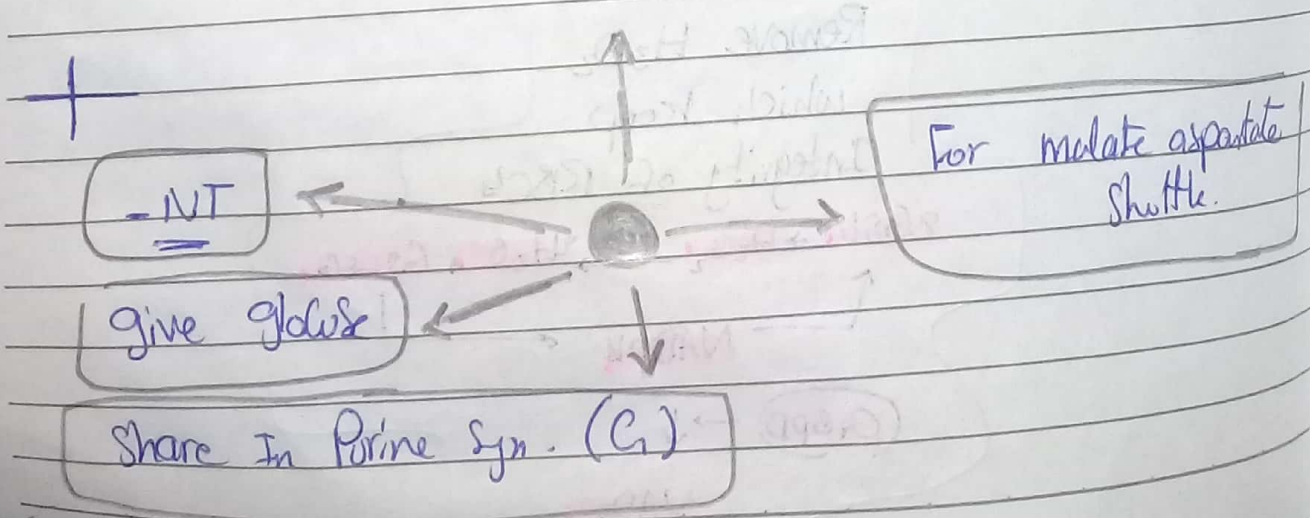 For malate aspartate
Shuttle.
- NT
give glocuse
Share In Purine Syn. (G)